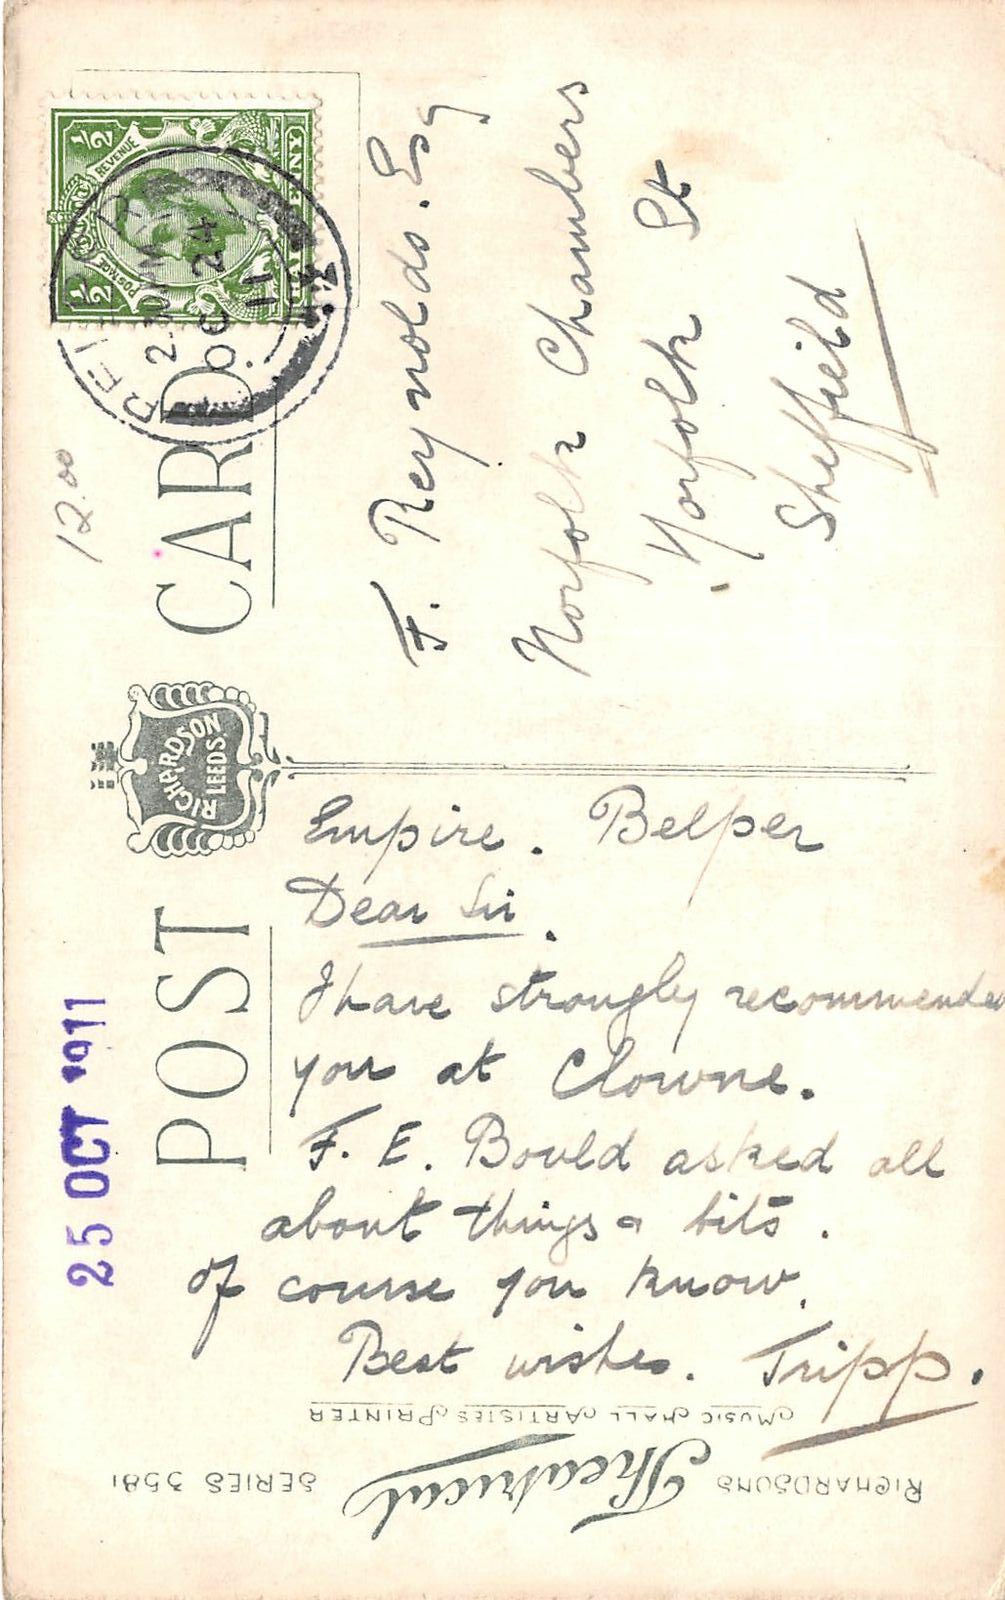 12.00
POST CARD
RICHARDSON
LEEDS
25 OCT 1911
½ ½
POSTAGE REVENUE
BELPER
2.30 PM
OC 24
11
F. Reynolds. Esq
Norfolk Chambers
Norfolk St
Sheffield
Empire. Belper
Dear Sir.
I have strongly recommended
you at Clowne.
F. E. Bould asked all
about things & bits.
of course you know.
Best wishes. Tripp.
MUSIC HALL ARTISTES PRINTER
RICHARDSONS Theatrical SERIES 3581